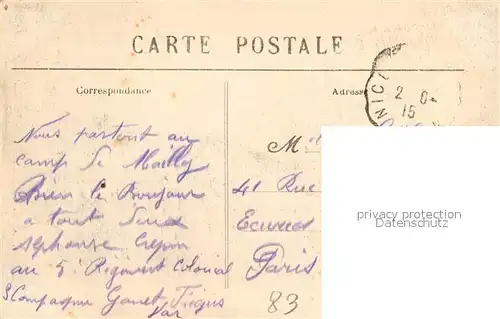 CARTE POSTALE
Correspondance
Adresse
2
15
Nous partont au
camp de Mailly
Bien le Bonjour
a tout
alphonse Crepin
au 5e Regiment Colonial
3 Compagnie
Var
M
41 Rue
Ecuries
Paris
83
privacy protection
Datenschutz